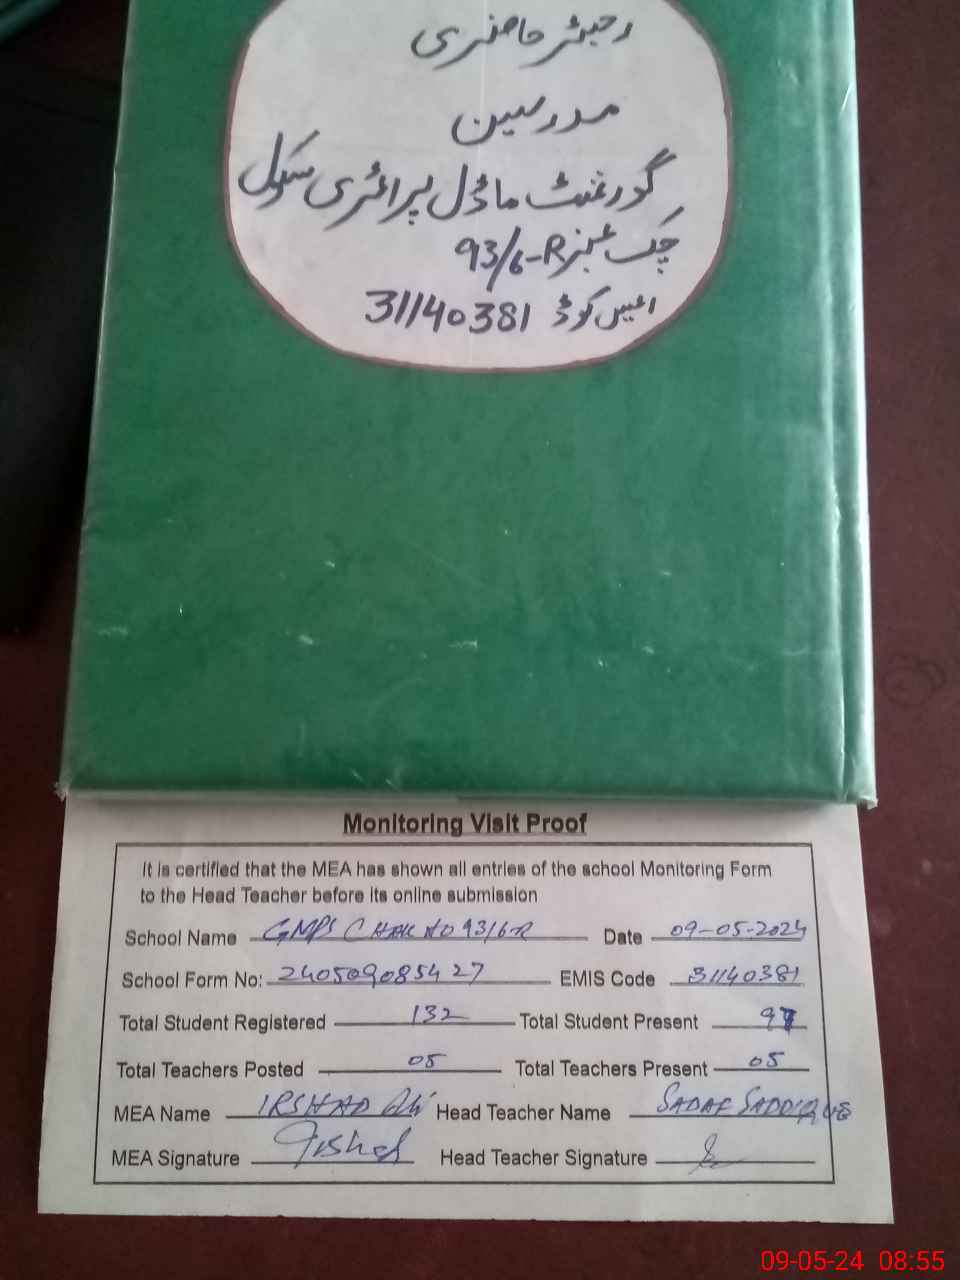 رجسٹر حاضری
مدرسین
گورنمنٹ ماڈل پرائمری سکول
چک نمبر 93/6-R
ایمیس کوڈ 31140381
Monitoring Visit Proof
It is certified that the MEA has shown all entries of the school Monitoring Form
to the Head Teacher before its online submission
School Name GMPS CHAK NO 93/6-R Date 09-05-2024
School Form No: 240509085427 EMIS Code 31140381
Total Student Registered 132 Total Student Present
Total Teachers Posted 05 Total Teachers Present 05
MEA Name IRSHAD Ali Head Teacher Name SADAF SADDIQUE
MEA Signature Irshad Head Teacher Signature
09-05-24 08:55